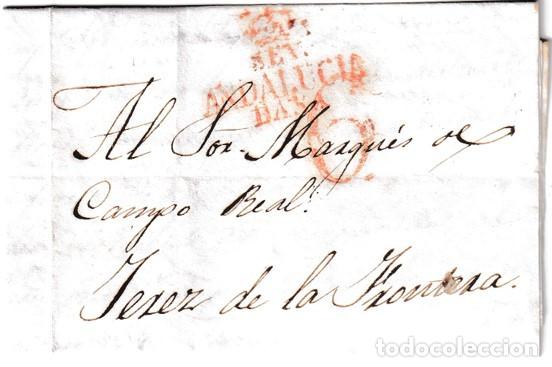 SEV.
ANDALUCIA
BAXA
6
Al Sor. Marqués de
Campo Real.
Jerez de la Frontera.
todocoleccion